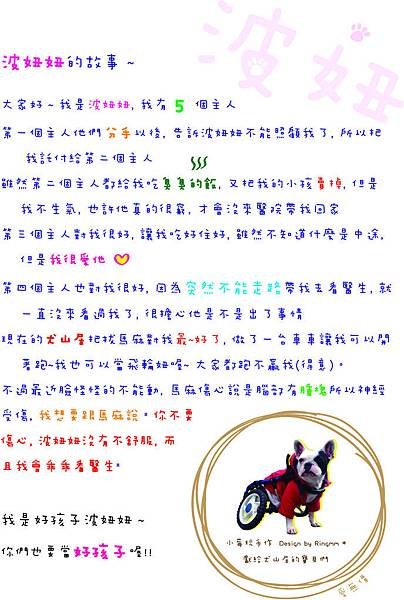 波妞
波妞妞的故事~
大家好~我是波妞妞,我有5個主人
第一個主人他們分手以後,告訴波妞妞不能照顧我了,所以把
我託付給第二個主人
雖然第二個主人都給我吃臭臭的飯,又把我的小孩賣掉,但是
我不生氣,也許他真的很窮,才會沒來醫院帶我回家
第三個主人對我很好,讓我吃好住好,雖然不知道什麼是中途,
但是我很愛他
第四個主人也對我很好,因為突然不能走路帶我去看醫生,就
一直沒來看過我了,很擔心他是不是出了事情
現在的犬山居把拔馬麻對我最~好了,做了一台車車讓我可以開
著跑~我也可以當飛輪妞喔~大家都跑不贏我(得意)。
不過最近臉怪怪的不能動,馬麻傷心說是腦部有腫塊所以神經
受傷,我想要跟馬麻說。你不要
傷心,波妞妞沒有不舒服,而
且我會乖乖看醫生。
我是好孩子波妞妞~
你們也要當好孩子喔!!
小莓粒手作 Design by Ringmm *
獻給犬山居的寶貝們